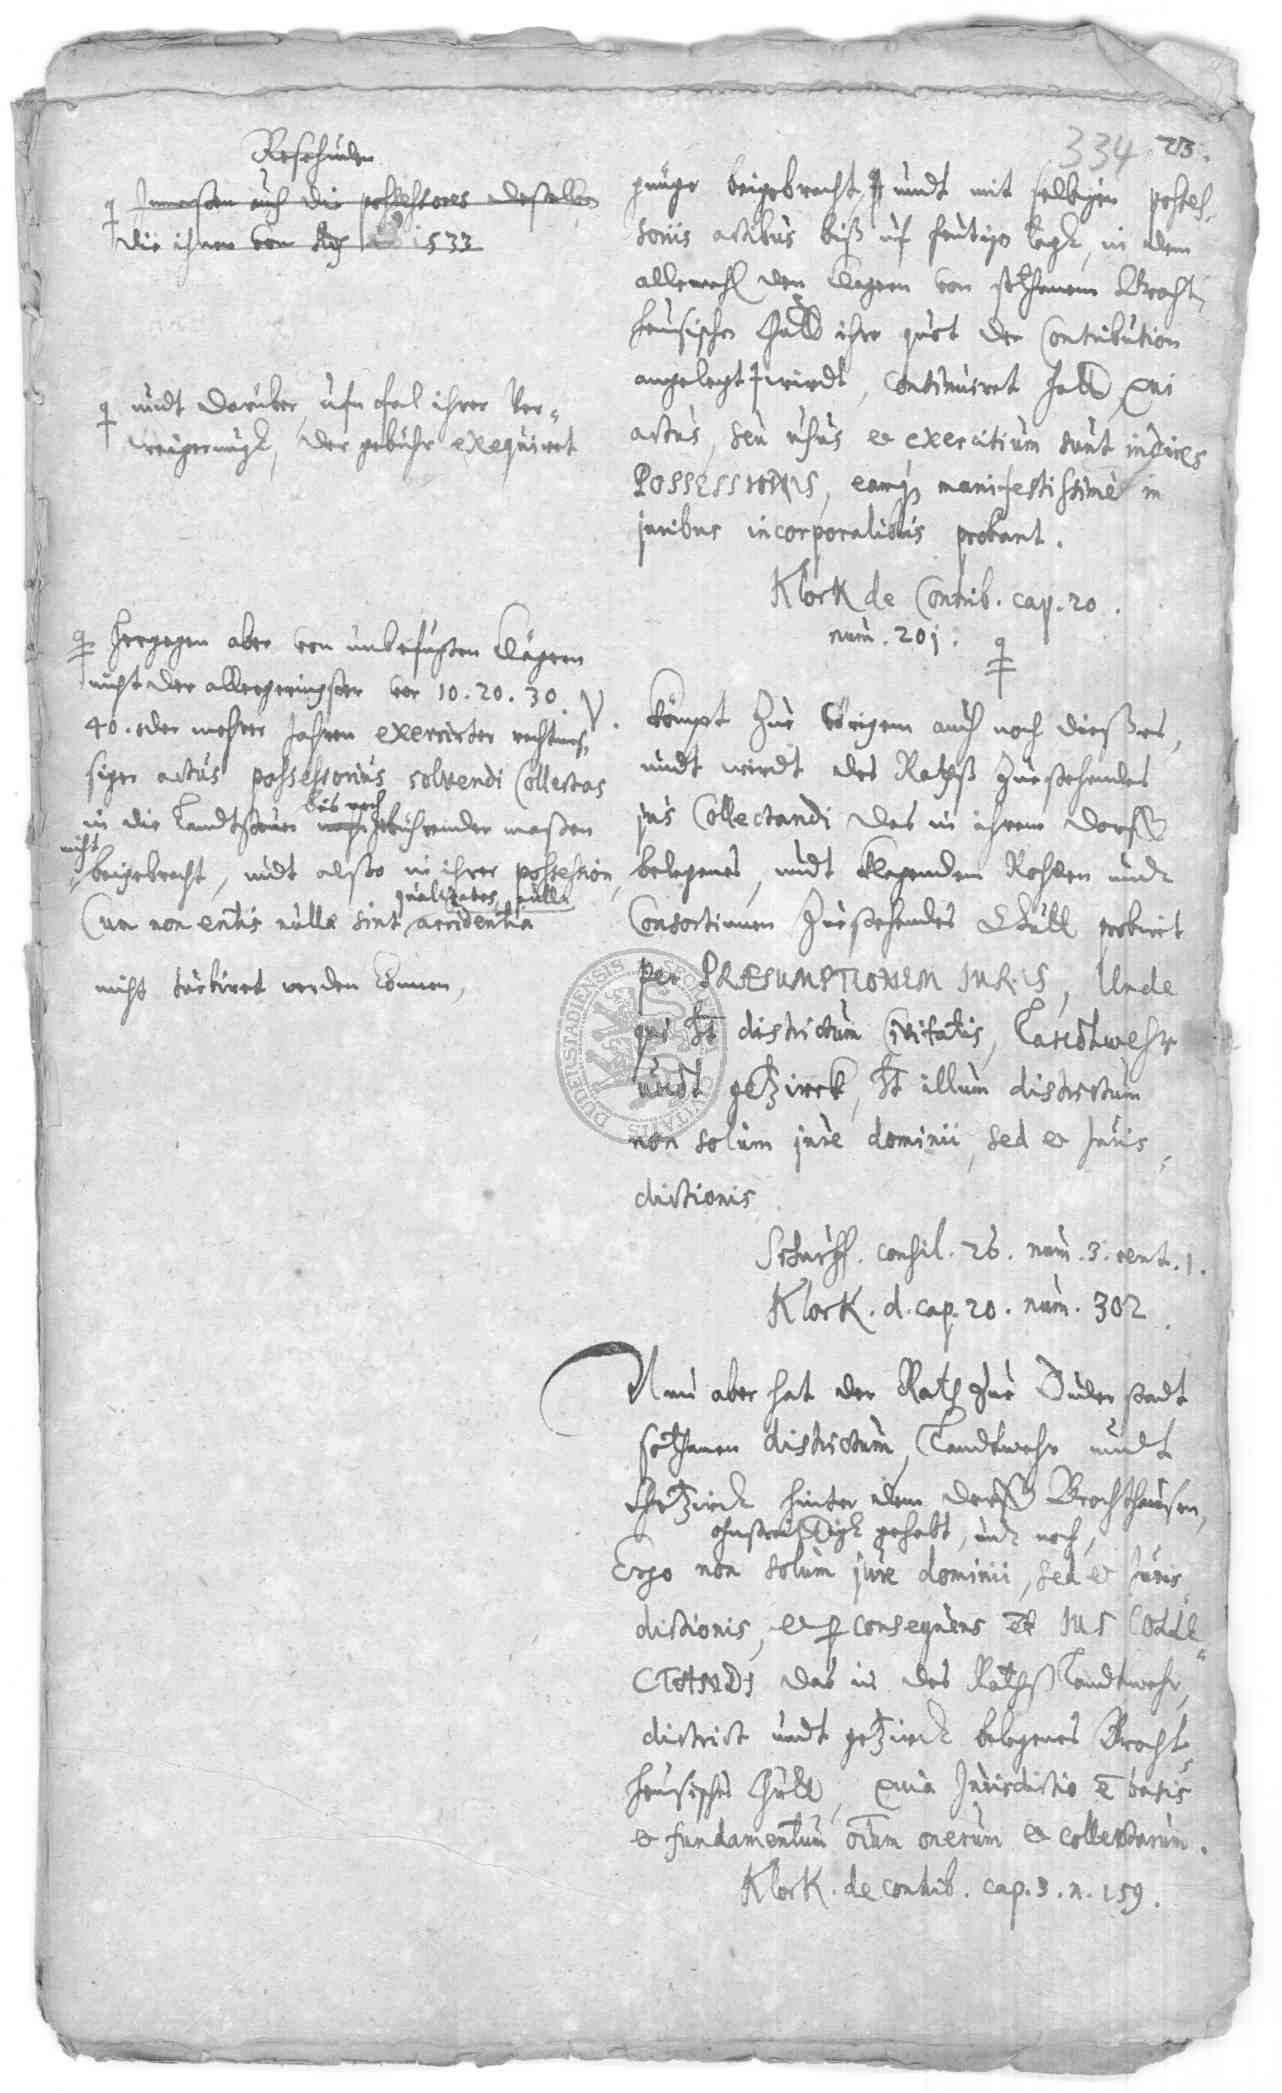 334 23.
Inmaßen auch die possessores deßelben
die ihnen von 1533
undt darüber, ufn fal ihrer ver-
weigerungk, der gebühr exequiret
Hergegen aber von unbefugten Clägern
nicht der allergeringster vor 10. 20. 30.
40. oder mehrer Jahren exercirter rechtmes-
siger actus possessorius solvendi Collectas
in die Landtsteuer bis noch gebührender maßen
nicht
beigebracht, undt also in ihrer possession,
qualitates nulla
Cum non entis nulla sint accidentia
nicht werden können,
gnüge beigebracht, undt mit selbigen posses-
soriis actibus biß uf heutigen tagk, in dem
allemahl den Clägern von sothanem Brocht-
heusischen guett ihre quot der Contribution
angelegt wirdt, continuiret hatt, qui
actus, seu usus et exercitium sunt indices
POSSESSIONIS, eamq manifestissimè in
juribus incorporalibus probant.
Klock de Contrib. cap. 20.
num. 201.
Kömpt zue vorigem auch noch dießes,
undt wirdt des Rathß zuestehendes
jus Collectandi des in ihrem dorff
belegenes, undt klagendem undt
Consortinnen zuestehendes Guett probirt
per PRÆSUMPTIONEM JURIS, Unde
qui ht districtum Civitatis, Landtwehr
undt geZirck, ht illum districtum
non solum jure dominii, sed et Juris-
dictionis
consil. 26. num. 3. cent. 1.
Klock. d. cap. 20. num. 302.
Nun aber hat der Rath zue Duderstadt
sothanen districtum, Landtwehr undt
geZirck hinter dem dorff Brochthausen,
gehabt, undt noch,
Ergo non solum jure dominii, sed et Juris-
dictionis, et p consequens et JUS COLLE-
CTANDI das in des Rathß Landtwehr,
district undt geZirck belegenes Brocht-
heusisches guett, quia Jurisdictio ē basis
et fundamentum oīum onerum et collectarum.
Klock. de contrib. cap. 3. n. 159.
DUDERSTADIENSIS CIVITATIS